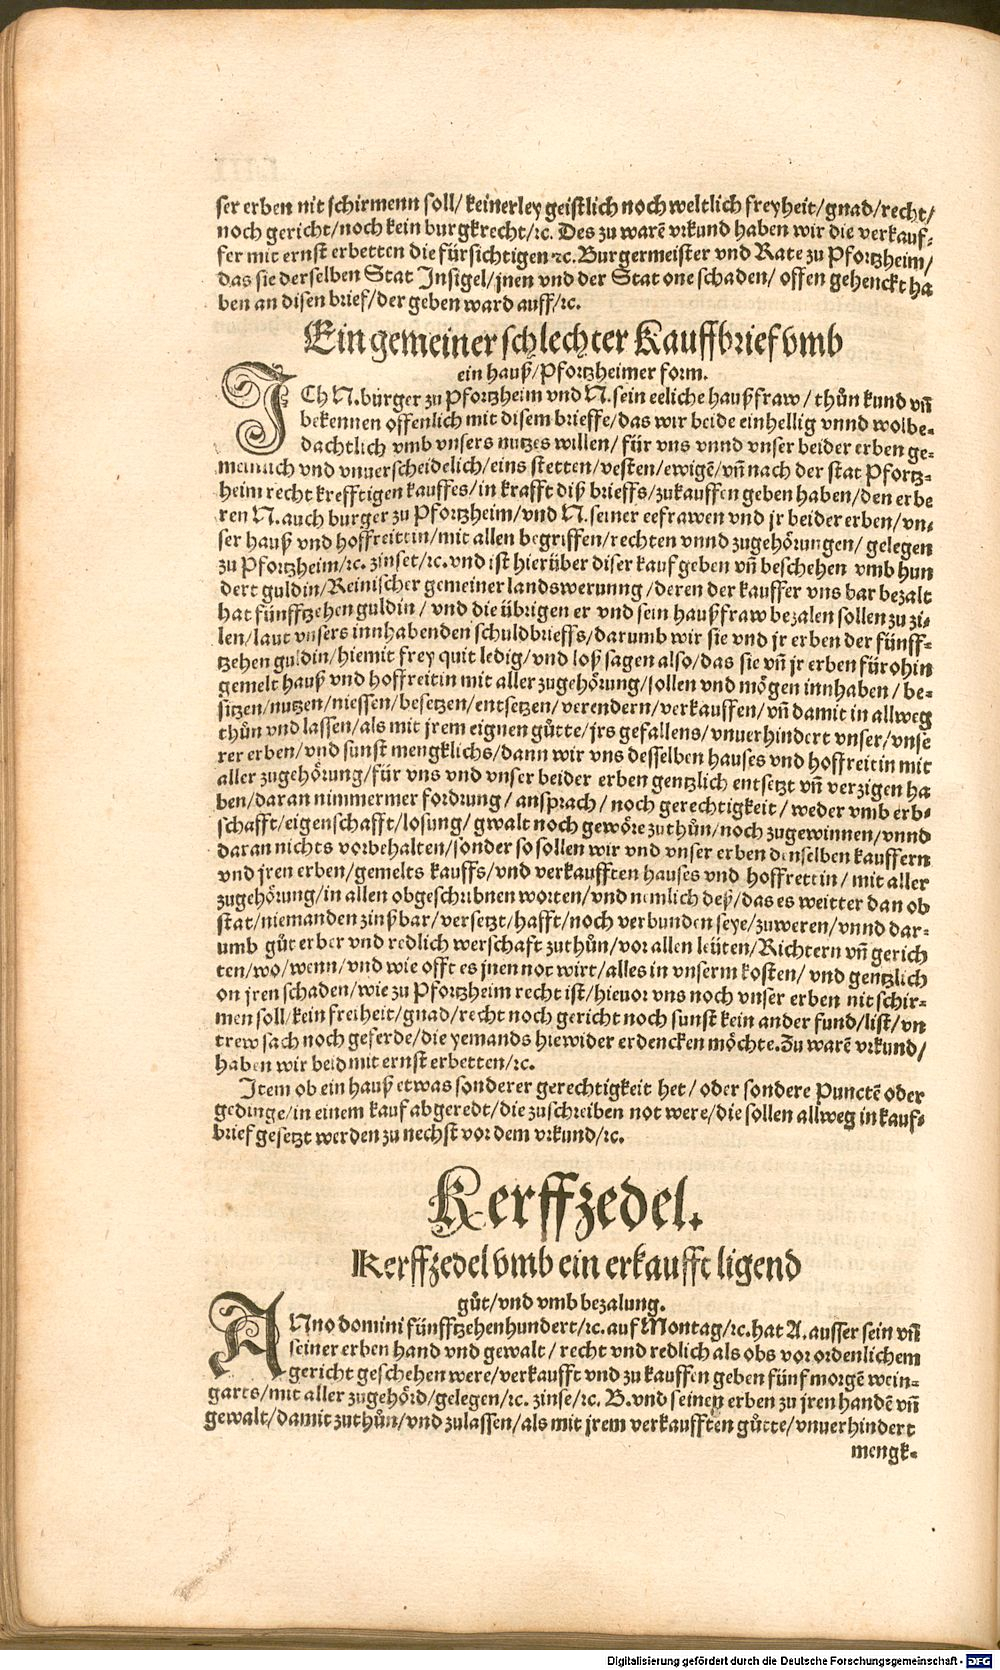 ser erben nit schirmenn soll/ keinerley geistlich noch weltlich freyheit/gnad/recht/
noch gericht/noch kein burgkrecht/ꝛc. Des zu warẽ vrkund haben wir die verkauf-
fer mit ernst erbetten die fürsichtigen ꝛc. Burgermeister vnd Rate zu Pfortzheim/
das sie derselben Stat Insigel/jnen vnd der Stat one schaden/ offen gehenckt ha
ben an disen brief/der geben ward auff/ꝛc.
Ein gemeiner schlechter Kauffbrief vmb
ein hauß/Pfortzheimer form.
ICh N. burger zu Pfortzheim vnd N. sein eeliche haußfraw/ thůn kund vñ
bekennen offenlich mit disem brieffe/das wir beide einhellig vnnd wolbe-
dachtlich vmb vnsers nutzes willen/ für vns vnnd vnser beider erben ge-
meinlich vnd vnuerscheidelich/eins stetten/vesten/ewigẽ/vñ nach der stat Pfortz-
heim recht krefftigen kauffes/in krafft diß brieffs/zukauffen geben haben/den erbe
ren N. auch burger zu Pfortzheim/vnd N. seiner eefrawen vnd jr beider erben/vn-
ser hauß vnd hoffreittin/mit allen begriffen/rechten vnnd zugehörungen/ gelegen
zu Pfortzheim/ꝛc. zinset/ꝛc. vnd ist hierüber diser kauf geben vñ beschehen vmb hun
dert guldin/Reinischer gemeiner landswerunng/deren der kauffer vns bar bezalt
hat fünfftzehen guldin/ vnd die übrigen er vnd sein haußfraw bezalen sollen zu zi-
len/laut vnsers innhabenden schuldbrieffs/darumb wir sie vnd jr erben der fünff-
tzehen guldin/hiemit frey quit ledig/vnd loß sagen also/das sie vñ jr erben fürohin
gemelt hauß vnd hoffreitin mit aller zugehörung/sollen vnd mögen innhaben/ be-
sitzen/nutzen/niessen/besetzen/entsetzen/verendern/verkauffen/vñ damit in allweg
thůn vnd lassen/als mit jrem eignen gůtte/jrs gefallens/vnuerhindert vnser/vnse
rer erben/vnd sunst mengklichs/dann wir vns desselben hauses vnd hoffreitin mit
aller zugehörung/für vns vnd vnser beider erben gentzlich entsetzt vñ verzigen ha
ben/daran nimmermer fordrung/ ansprach/ noch gerechtigkeit/ weder vmb erb-
schafft/eigenschafft/losung/ gwalt noch gewöre zuthůn/noch zugewinnen/vnnd
daran nichts vorbehalten/sonder so sollen wir vnd vnser erben denselben kauffern
vnd jren erben/gemelts kauffs/vnd verkaufften hauses vnd hoffrettin/ mit aller
zugehörung/in allen obgeschribnen worten/vnd nemlich deß/das es weitter dan ob
stat/niemanden zinßbar/versetzt/hafft/noch verbunden seye/zuweren/vnnd dar-
umb gůt erber vnd redlich werschaft zuthůn/vor allen leüten/Richtern vñ gerich
ten/wo/wenn/vnd wie offt es jnen not wirt/alles in vnserm kosten/ vnd gentzlich
on jren schaden/wie zu Pfortzheim recht ist/hieuor vns noch vnser erben nit schir-
men soll/kein freiheit/gnad/recht noch gericht noch sunst kein ander fund/list/vn
trew sach noch geferde/die yemands hiewider erdencken möchte. Zu warẽ vrkund/
haben wir beid mit ernst erbetten/ꝛc.
Item ob ein hauß etwas sonderer gerechtigkeit het/ oder sondere Punctẽ oder
gedinge/in einem kauf abgeredt/die zuschreiben not were/die sollen allweg in kauf-
brief gesetzt werden zu nechst vor dem vrkund/ꝛc.
Kerffzedel.
Kerffzedel vmb ein erkaufft ligend
gůt/vnd vmb bezalung.
ANno domini fünfftzehenhundert/ꝛc. auf Montag/ꝛc. hat A. ausser sein vñ
seiner erben hand vnd gewalt/ recht vnd redlich als obs vor ordenlichem
gericht geschehen were/verkaufft vnd zu kauffen geben fünf morgẽ wein-
garts/mit aller zugehörd/gelegen/ꝛc. zinse/ꝛc. B. vnd seinen erben zu jren handẽ vñ
gewalt/damit zuthůn/vnd zulassen/als mit jrem verkaufften gůtte/vnuerhindert
mengk-
Digitalisierung gefördert durch die Deutsche Forschungsgemeinschaft - DFG